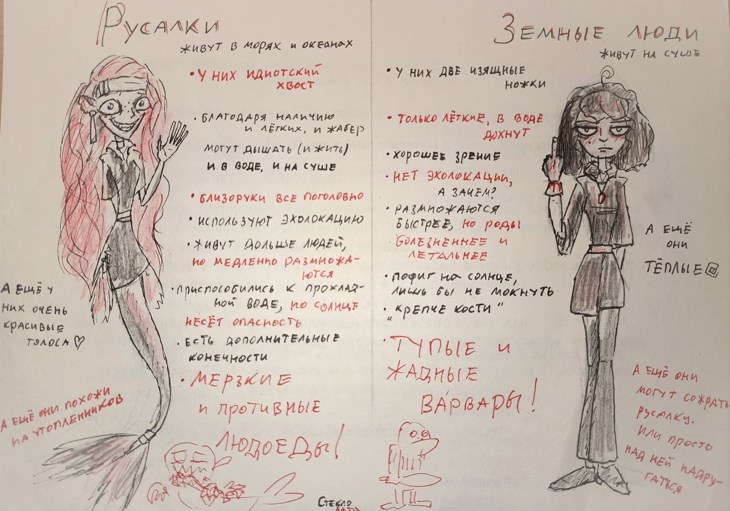 Русалки
живут в морях и океанах
• у них идиотский
хвост
• благодаря наличию
и лёгких, и жабер
могут дышать (и жить)
и в воде, и на суше
• близоруки все поголовно
• используют эхолокацию
• живут дольше людей,
но медленно размножа-
ются
• приспособились к прохлад-
ной воде, но солнце
несёт опасность
• есть дополнительные
конечности
• мерзкие
и противные
людоеды!
А ещё у
них очень
красивые
голоса♡
А ещё они похожи
на утопленников
Земные люди
живут на суше
• у них две изящные
ножки
• только лёгкие, в воде
дохнут
• хорошее зрение
• нет эхолокации,
а зачем?
• размножаются
быстрее, но роды
болезненнее и
летальнее
• пофиг на солнце,
лишь бы не мокнуть
• "крепче кости"
• тупые и
жадные
варвары!
А ещё
они
тёплые
А ещё они
могут сожрать
русалку.
Или просто
над ней надру-
гаться
Стекло